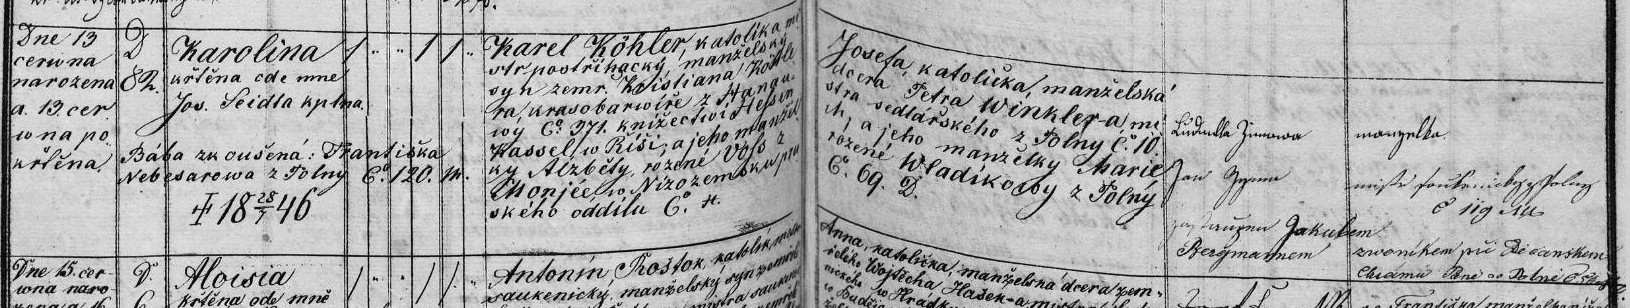 Dne 13
cerwna
narozena
a. 13. cer
wna po
křtěna.
D
82.
Karolina
křtěna ode mne
Jos. Seidla kplna.
Bába zkoušená: Františka
Nebesarowa z Polny Č. 120. m.
‡ 18 28/7 46
Karel Köhler, katolík, mi
str postřihacký, manželský
syn zemř. Kristiana Köhle
ra, krasobarwíře z Hanau
wy Č. 371. knížectwí Hessen
Kassel, w Říši, a jeho manžel
ky Alžběty, rozené Voss z
w Nizozemsku pru
ského oddílu Č. 4.
Josefa, katolička, manželská
dcera Petra Winkler-a mi
stra sedlářského z Polny Č. 10,
m, a jeho manželky Marie
rozené Wladikowy z Polný
Č. 69. D.
Ludmila Zimowa
manzelka
Jan Zyma
Č 119
zastaupen Jakubem
Bergmannem
zwoníkem při Děkanském
Chrámu Páně w Polné
Dne 15. cer-
wna naro
D.
Aloisia
křtěna ode mně
Antonín Prostok, katolík,
saukenický, manželský syn
Anna, katolička, manželská dcera zem-
Wojtěcha Hašek-a